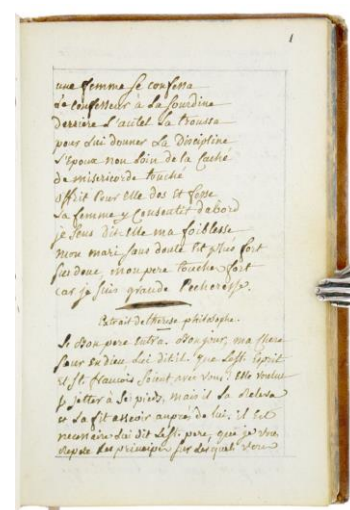 1
une femme se confessa
le confesseur à la sourdine
derriere l'autel la troussa
pour lui donner la Discipline
l'Epoux non loin de la caché
de misericorde touché
offrit pour elle dos et fesse
la femme y consentit dabord
je sens dit elle ma foiblesse
mon mari sans doute est plus fort
sus donc, mon pere touche fort
car je suis grande Pecheresse.
Extrait de therese philosophe.
le Bon pere entra. Bonjour, ma chere
sœur en dieu, lui dit il. que le St. Esprit
et St. francois soient avec vous: elle voulut
se jetter à ses pieds, mais il la releva
et la fit asseoir auprès de lui. il est
necessaire lui dit le St. pere, que je vous
repete les principes sur lesquels vous